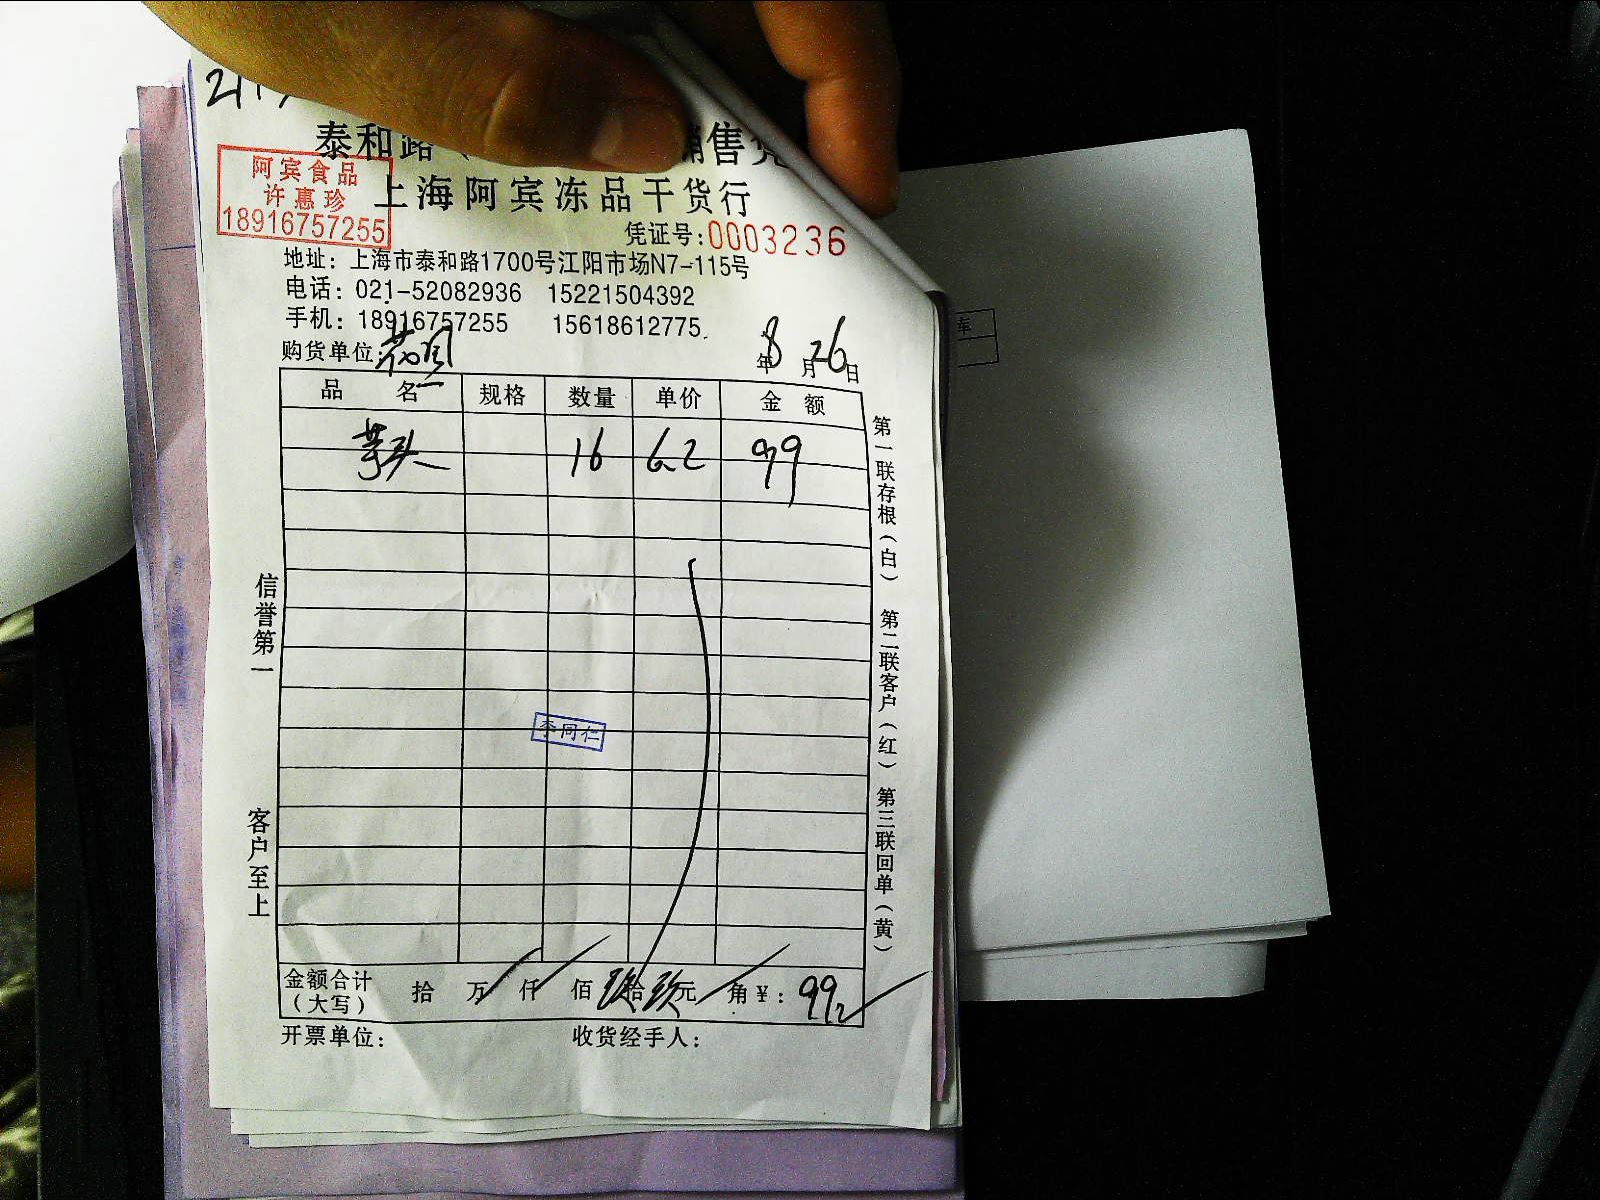 泰和路 销售凭
阿宾食品
许惠珍
18916757255
上海阿宾冻品干货行
凭证号:0003236
地址：上海市泰和路1700号江阳市场N7-115号
电话：021-52082936 15221504392
手机：18916757255 15618612775
购货单位: 年8月26日
品 名 规格 数量 单价 金 额
芋头 16 6.2 99
第一联存根（白） 第二联客户（红） 第三联回单（黄）
信誉第一
客户至上
李同仁
金额合计（大写） 拾 万 仟 佰 玖拾玖元 角 ¥：99
开票单位： 收货经手人：
车